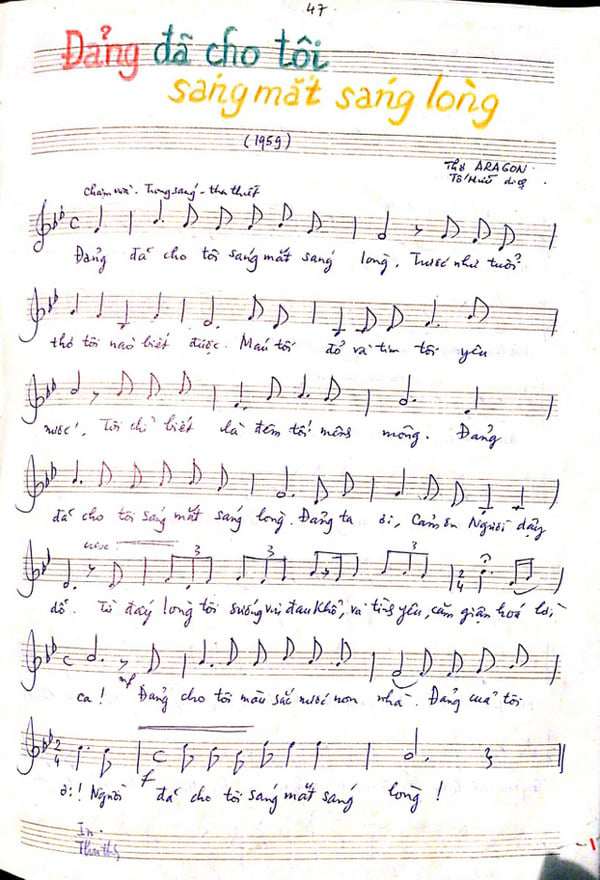 47
Đảng đã cho tôi
sáng mắt sáng lòng
(1959)
Thơ ARAGON.
Tố Hữu dịch
Chậm vừa. Trong sáng - tha thiết
C
Đảng đã cho tôi sáng mắt sáng lòng, Trước như tuổi
thơ tôi nào biết được. Máu tôi đỏ và tim tôi yêu
nước, Tôi chỉ biết là đêm tối mênh mông. Đảng
đã cho tôi sáng mắt sáng lòng. Đảng ta ơi, Cảm ơn Người dạy
3 3 3 2 4
dỗ. Từ đấy lòng tôi sướng vui đau khổ, và tình yêu, căm giận hoá lời
C mp
ca! Đảng cho tôi màu sắc nước non nhà. Đảng của tôi
2 4 C f
ơi! Người đã cho tôi sáng mắt sáng lòng!